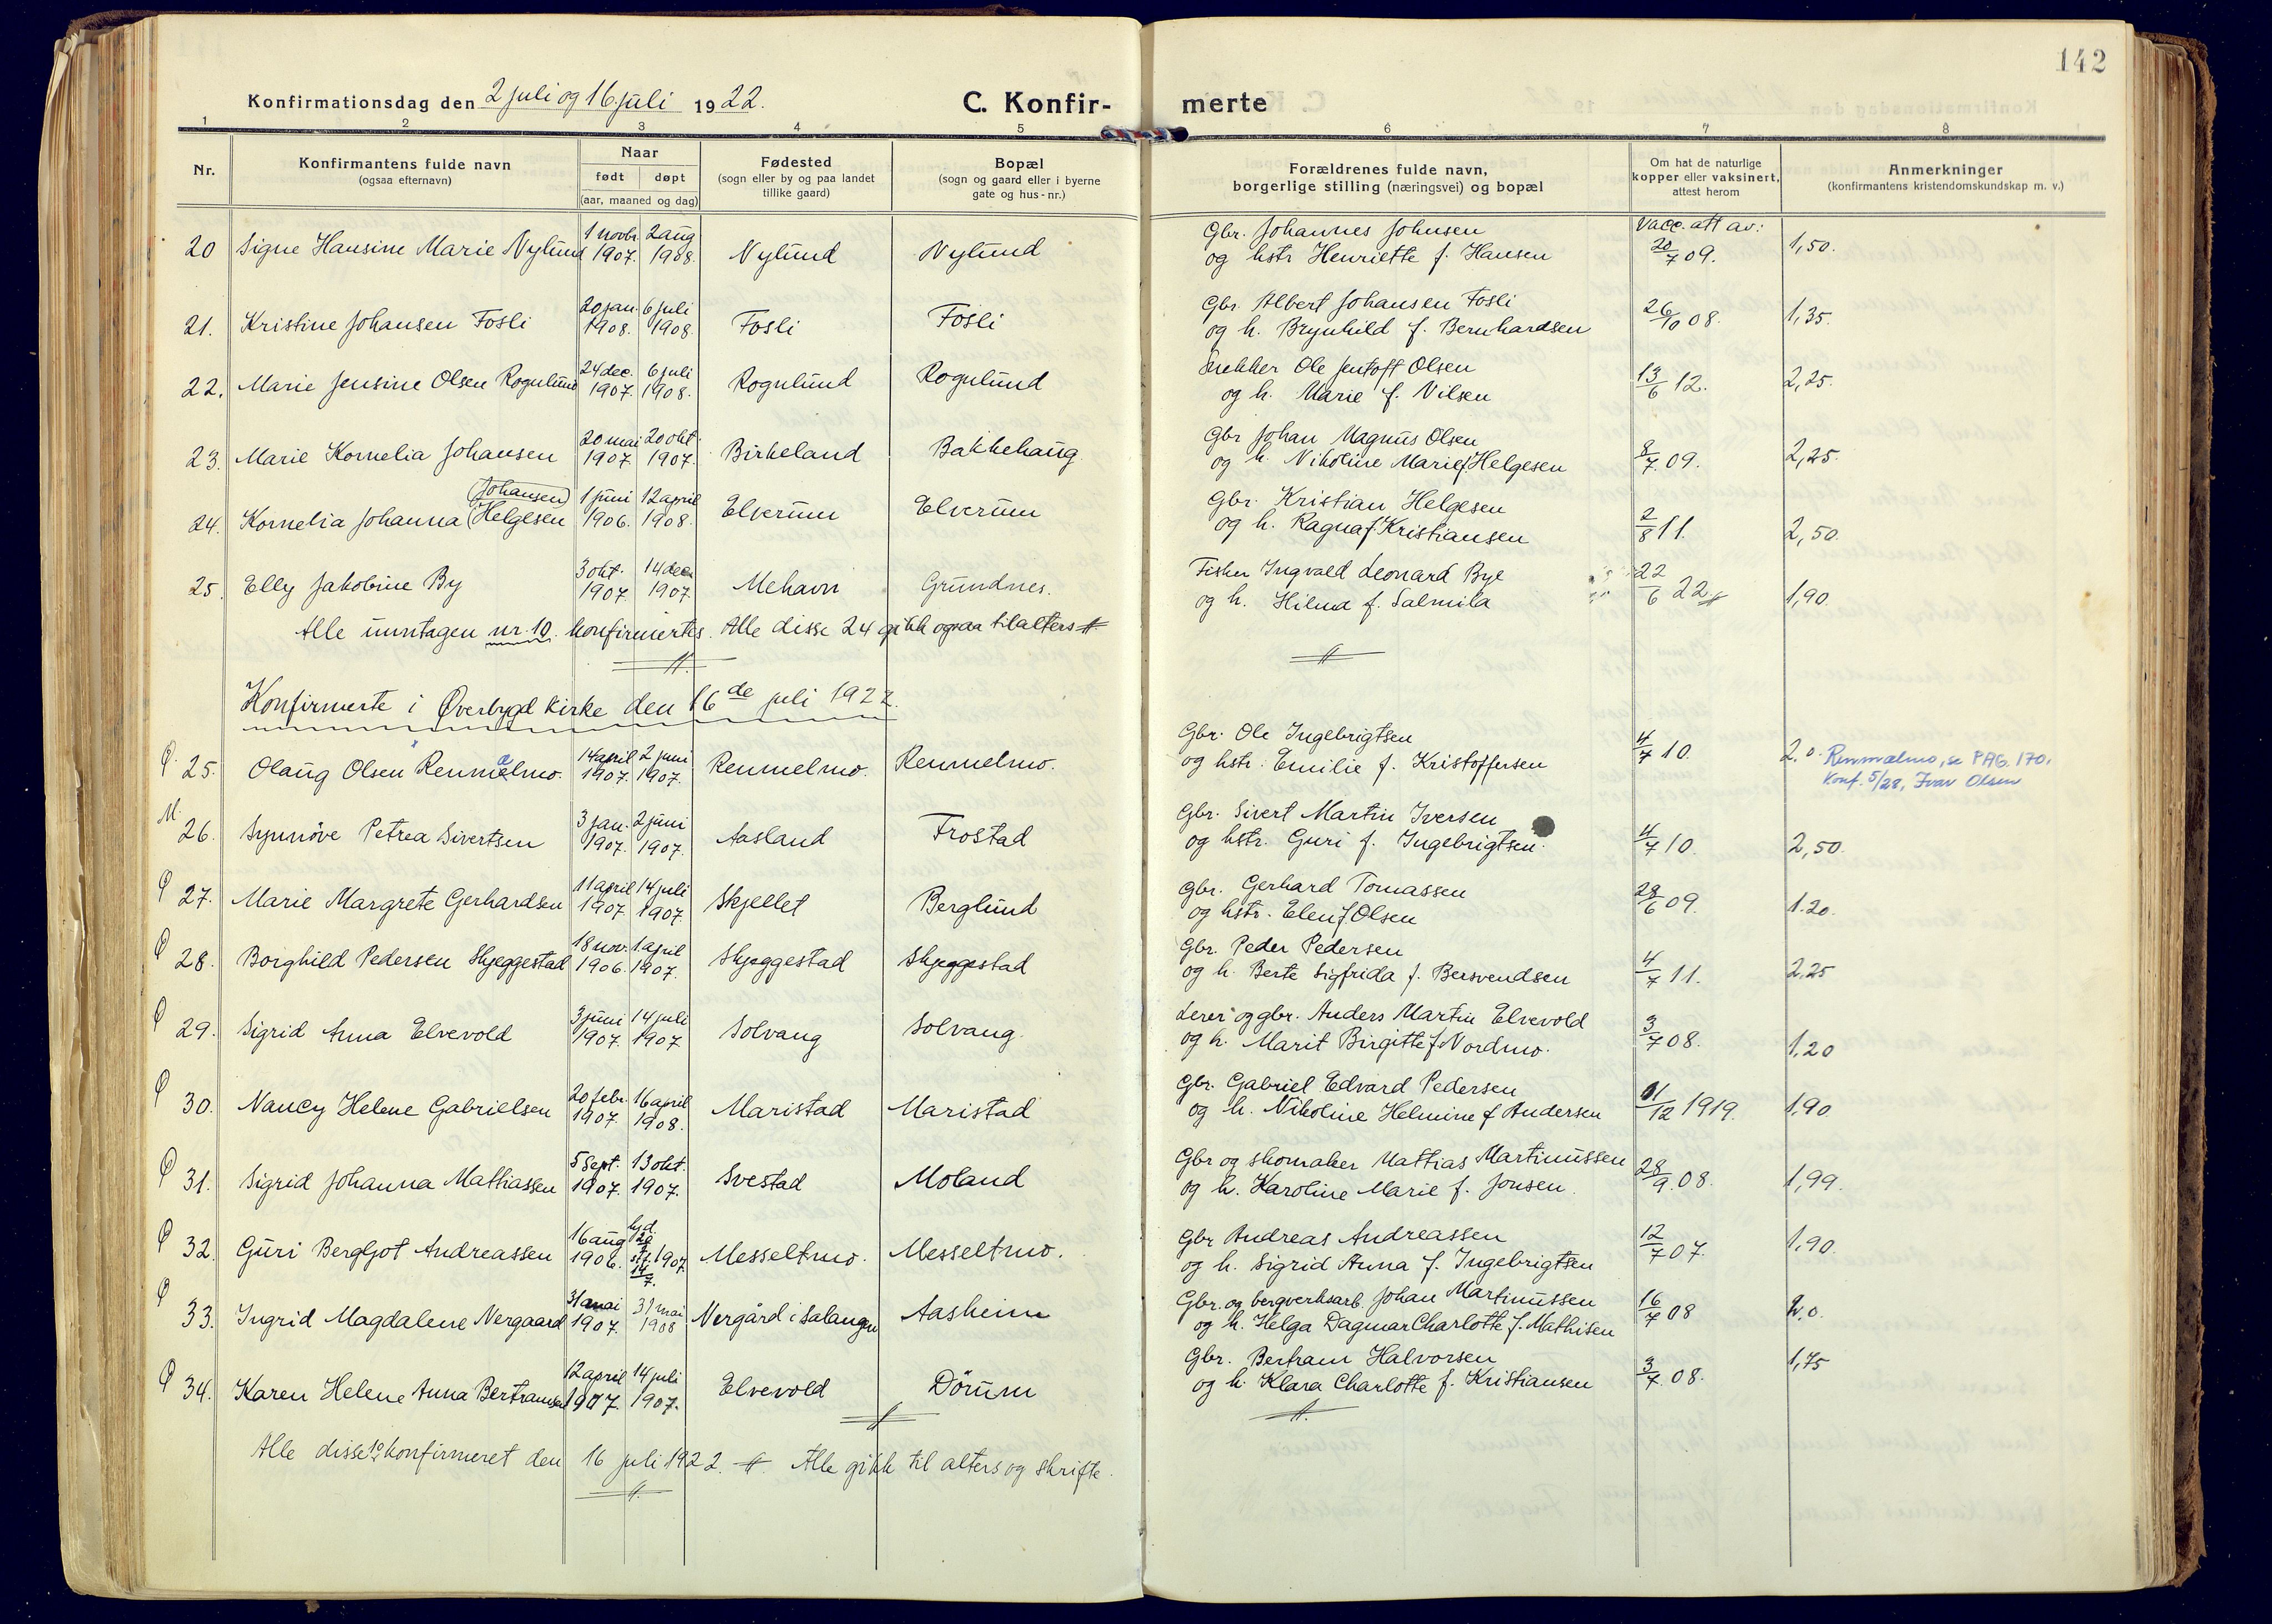 142
Konfirmationsdag den 2 juli og 16 juli 1922.
C. Konfir-
merte
1 2 3 4 5 6 7 8
Nr.
Konfirmantens fulde navn
(ogsaa efternavn)
Naar
født døpt
(aar, maaned og dag)
Fødested
(sogn eller by og paa landet
tillike gaard)
Bopæl
(sogn og gaard eller i byerne
gate og hus-nr.)
Forældrenes fulde navn,
borgerlige stilling (næringsvei) og bopæl
Om hat de naturlige
kopper eller vaksinert,
attest herom
Anmerkninger
(konfirmantens kristendomskundskap m. v.)
20 Signe Hansine Marie Nylund 1 novbr. 1907. 2 aug 1908. Nylund Nylund Gbr. Johannes Johnsen Vacc. att av:
og hstr Henriette f. Hansen 20/7 09. 1,50.
21. Kristine Johansen Fosli 20 jan. 1908. 6 juli 1908. Fosli Fosli Gbr. Albert Johansen Fosli
og h. Brynhild f. Bernhardsen 26/10 08. 1,35.
22. Marie Jensine Olsen Rognlund 24 dec. 1907. 6 juli 1908. Rognlund Rognlund Snekker Ole Jentoft Olsen
og h. Marie f. Nilsen 13/6 12. 2,25.
23. Marie Kornelia Johansen 20 mai 1907. 20 okt. 1907. Birkeland Bakkehaug Gbr Johan Magnus Olsen
og h. Nikoline Marie f. Helgesen 8/7. 09. 2,25.
24. Kornelia Johanna (Johansen) Helgesen 1 juni 1906. 12 april 1908. Elverum Elverum Gbr. Kristian Helgesen
og h. Ragna f. Kristiansen 2/8 11. 2,50.
25. Elly Jakobine By 3 okt. 1907. 14 dec. 1907. Mehavn Grundnes. Fisker Ingvald Leonard Bye
og h. Hilma f. Salmila 22/6 22. 1,90.
Alle unntagen nr. 10. konfirmertes. Alle disse 24 gikk ogsaa til alters
Konfirmerte i Øverbygd kirke den 16de juli 1922.
25. Olaug Olsen Rennelmo. 14 april 1907. 2 juni 1907. Rennelmo. Rennelmo. Gbr. Ole Ingebrigtsen
og hstr. Emilie f. Kristoffersen 4/7 10. 2,0. Rennnælmo, se PAG. 170.
Konf. 5/28, Ivar Olsen
26. Synnöve Petrea Sivertsen 3 jan. 1907. 2 juni 1907. Aasland Frostad Gbr. Sivert Martin Iversen
og hstr. Guri f. Ingebrigtsen. 4/7 10. 2,50.
27. Marie Margrete Gerhardsen 11 april 1907. 14 juli 1907. Skjellet Berglund Gbr. Gerhard Tomassen
og hstr. Elen f. Olsen 28/6 09. 1.20.
28. Borghild Pedersen Skjeggestad 18 nov. 1906. 1 april 1907. Skjeggestad Skjeggestad Gbr. Peder Pedersen
og h. Berte Sigfrida f. Bersvendsen 4/7 11. 2,25
29. Sigrid Anna Elvevold 3 juni 1907. 14 juli 1907. Solvang Solvang. Lerer og gbr. Anders Martin Elvevold
og h. Marit Birgitte f. Nordmo. 3/7 08. 1,20
30. Nancy Helene Gabrielsen 20 febr. 1907. 16 april 1908. Maristad Maristad Gbr. Gabriel Edvard Pedersen
og h. Nikoline Helmine f. Andersen 11/12 1919. 1,90
31. Sigrid Johanna Mathiassen 5 sept. 1907. 13 okt. 1907. Svestad Moland Gbr og skomaker Mattias Martinussen
og h. Karoline Marie f. Jonsen. 28/9. 08. 1,99.
32. Guri Bergljot Andreassen 16 aug 1906. hjd. st. f. 14/7. 1907. Messeltmo. Messeltmo. Gbr Andreas Andreassen
og h. Sigrid Anna f. Ingebrigtsen 12/7 07. 1.90.
33. Ingrid Magdalene Nergaard 31 mai 1907. 31 mai 1908 Nergård i Salangen Aasheim Gbr. og bergverksarb. Johan Martinussen
og h. Helga Dagmar Charlotte f. Mathisen 16/7 08 2,0.
34. Karen Helene Anna Bertramsen 12 april 1907. 14 juli 1907. Elvevold Dörum Gbr. Bertram Halvorsen
og h. Klara Charlotte f. Kristiansen 3/7. 08. 1,75
Alle disse 10 konfirmeret den 16 juli 1922. Alle gikk til alters og skrifte.